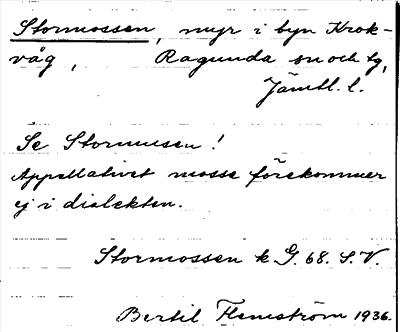 Stormossen, myr i byn Krok-
våg, Ragunda sn och tg,
Jämtl. l.
Se Stormusen!
Appellativet mosse förekommer
ej i dialekten.
Stormossen k G. 68. S.V.
Bertil Flemström 1936.